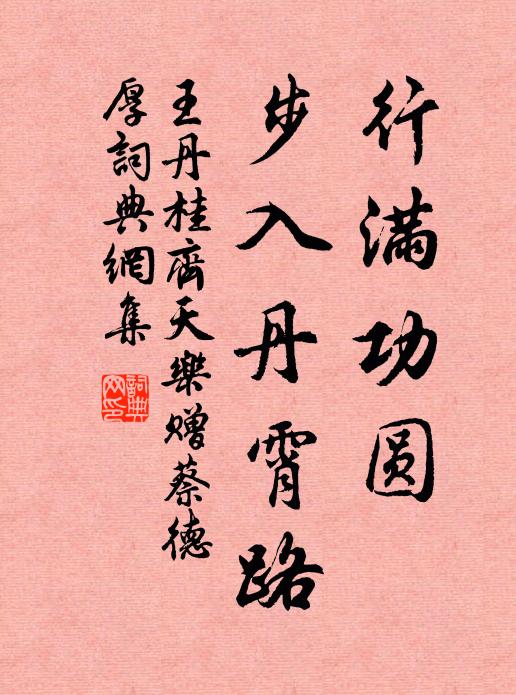 行满功圆
步入丹霄路
王丹桂齊天樂赠蔡德
厚詞典網集
詞典網印